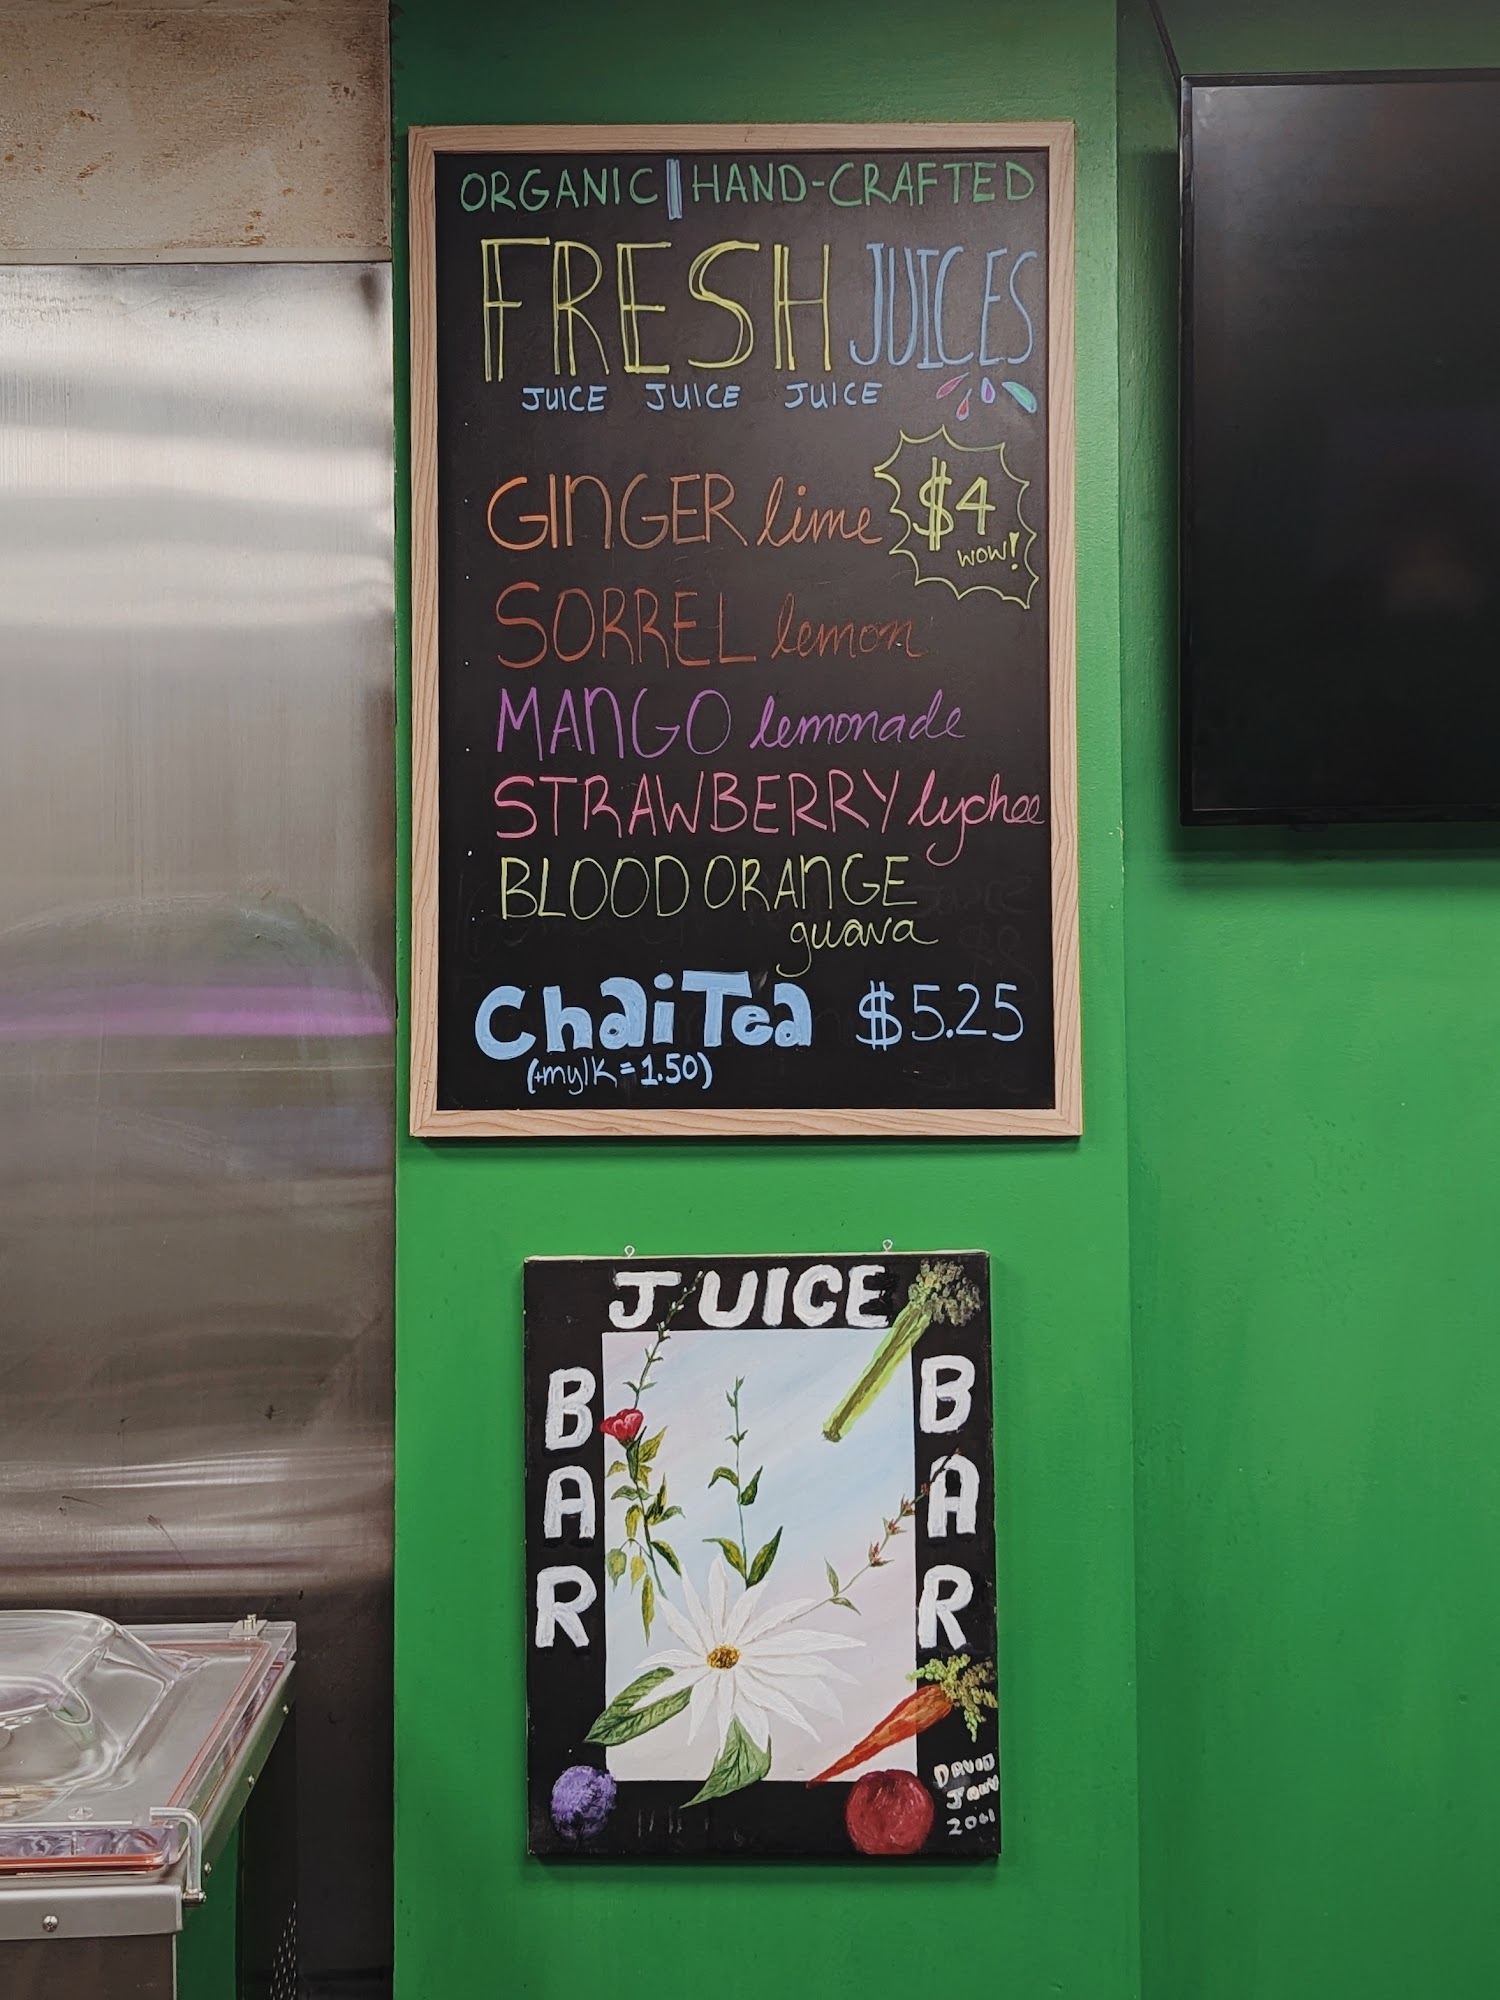 ORGANIC | HAND-CRAFTED
FRESH JUICES
JUICE JUICE JUICE
GINGER lime
$4
WOW!
SORREL lemon
MANGO lemonade
STRAWBERRY lychee
BLOOD ORANGE
guava
Chai Tea $5.25
(+mylk = 1.50)
JUICE
BAR
BAR
DAVID